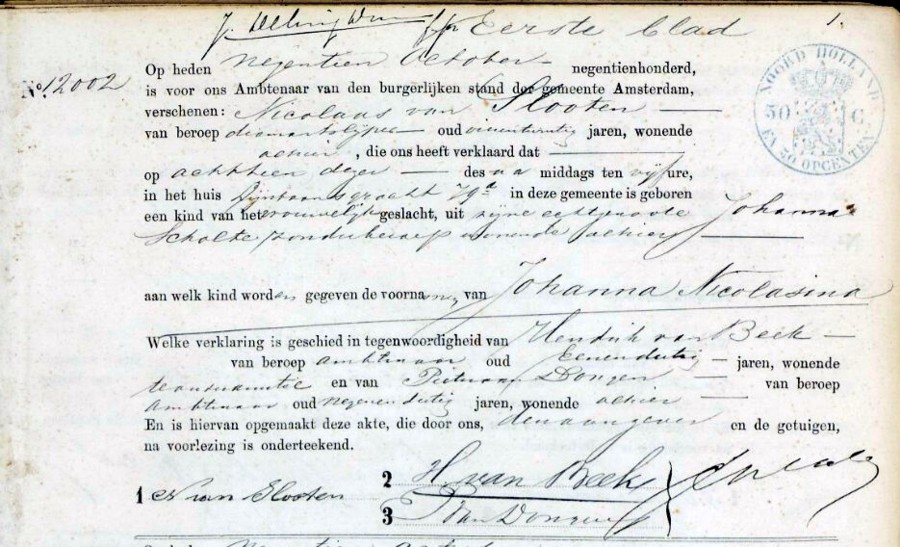 Eerste blad
1.
No. 12002
Op heden negentien October negentienhonderd,
is voor ons Ambtenaar van den burgerlijken stand der gemeente Amsterdam,
verschenen: Nicolaas van Slooten
van beroep oud jaren, wonende
alhier, die ons heeft verklaard dat
op achttien dezer des na middags ten vijf ure,
in het huis Lijnbaansgracht in deze gemeente is geboren
een kind van het vrouwelijk geslacht, uit zijne echtgenoote Johanna
Scholte, zonder beroep wonende alhier
aan welk kind worden gegeven de voornamen van Johanna Nicolasina
Welke verklaring is geschied in tegenwoordigheid van Hendrik van Beek
van beroep ambtenaar oud eenendertig jaren, wonende
en van Pieter van Dongen van beroep
ambtenaar oud negenendertig jaren, wonende alhier
En is hiervan opgemaakt deze akte, die door ons, den aangever en de getuigen,
na voorlezing is onderteekend.
1 N van Slooten
2 H. van Beek
3 P van Dongen
NOORD HOLLAND
50 C.
EN 30 OPCENTEN